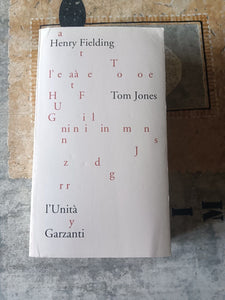 a
Henry Fielding
t
T
l'eaàe T o o e
t
H T F Tom Jones
U
G i l
n i n i i n m n s
n J
z d
g
r r
l'Unità
y
Garzanti
M